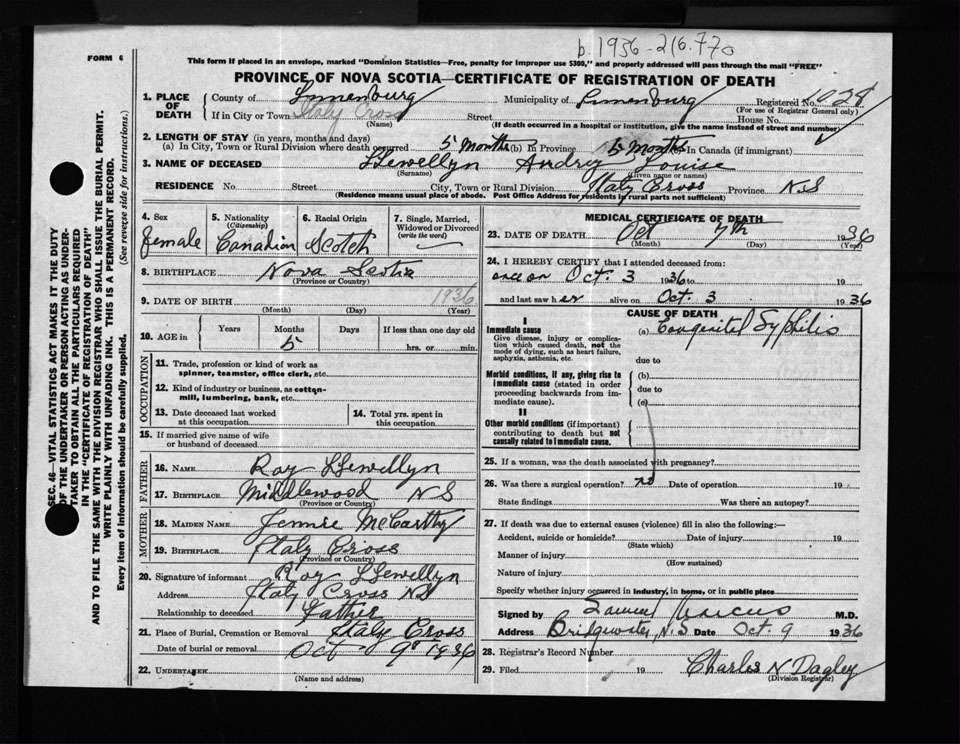 b. 1936-216.770
FORM 6
This form if placed in an envelope, marked "Dominion Statistics—Free, penalty for improper use $300," and properly addressed will pass through the mail "FREE"
PROVINCE OF NOVA SCOTIA—CERTIFICATE OF REGISTRATION OF DEATH
1. PLACE OF DEATH
County of Lunenburg Municipality of Lunenburg Registered No.
(For use of Registrar General only)
If in City or Town Italy Cross Street House No.
(Name) (If death occurred in a hospital or institution, give the name instead of street and number)
2. LENGTH OF STAY (in years, months and days)
(a) In City, Town or Rural Division where death occurred 5 Months (b) In Province 5 Months (c) In Canada (if immigrant)
3. NAME OF DECEASED Llewellyn Audrey Louise
(Surname) (Given name or names)
RESIDENCE No. Street City, Town or Rural Division Italy Cross Province N.S
(Residence means usual place of abode. Post Office Address for residents in rural parts not sufficient)
4. Sex Female
5. Nationality (Citizenship) Canadian
6. Racial Origin Scotch
7. Single, Married, Widowed or Divorced (write the word)
8. BIRTHPLACE Nova Scotia
(Province or Country)
9. DATE OF BIRTH 1936
(Month) (Day) (Year)
10. AGE in Years Months 5 Days If less than one day old hrs. or min.
OCCUPATION
11. Trade, profession or kind of work as spinner, teamster, office clerk, etc.
12. Kind of industry or business, as cotton-mill, lumbering, bank, etc.
13. Date deceased last worked at this occupation
14. Total yrs. spent in this occupation
15. If married give name of wife or husband of deceased
FATHER
16. NAME Roy Llewellyn
17. BIRTHPLACE Middlewood N S
MOTHER
18. MAIDEN NAME Jennie McCarthy
19. BIRTHPLACE Italy Cross
(Province or Country)
20. Signature of informant Roy Llewellyn
Address Italy Cross NS
Relationship to deceased Father
21. Place of Burial, Cremation or Removal Italy Cross
Date of burial or removal Oct 9 1936
22. UNDERTAKER
(Name and address)
MEDICAL CERTIFICATE OF DEATH
23. DATE OF DEATH Oct 7th 1936
(Month) (Day) (Year)
24. I HEREBY CERTIFY that I attended deceased from:
once on Oct. 3 1936 to 19
and last saw her alive on Oct. 3 1936
CAUSE OF DEATH
I
Immediate cause
Give disease, injury or complication which caused death, not the mode of dying, such as heart failure, asphyxia, asthenia, etc.
(a) Congenital Syphilis
due to
Morbid conditions, if any, giving rise to immediate cause (stated in order proceeding backwards from immediate cause).
(b)
due to
(c)
II
Other morbid conditions (if important) contributing to death but not causally related to immediate cause.
25. If a woman, was the death associated with pregnancy?
26. Was there a surgical operation? no Date of operation 19
State findings Was there an autopsy?
27. If death was due to external causes (violence) fill in also the following:—
Accident, suicide or homicide? Date of injury 19
(State which)
Manner of injury
(How sustained)
Nature of injury
Specify whether injury occurred in industry, in home, or in public place
Signed by Samuel Marcus M.D.
Address Bridgewater, N.S Date Oct. 9 1936
28. Registrar's Record Number
29. Filed 19 Charles N Dagley
(Division Registrar)
SEC. 46—VITAL STATISTICS ACT MAKES IT THE DUTY OF THE UNDERTAKER OR PERSON ACTING AS UNDERTAKER TO OBTAIN ALL THE PARTICULARS REQUIRED IN THE "CERTIFICATE OF REGISTRATION OF DEATH" AND TO FILE THE SAME WITH THE DIVISION REGISTRAR WHO SHALL ISSUE THE BURIAL PERMIT.
WRITE PLAINLY WITH UNFADING INK. THIS IS A PERMANENT RECORD.
Every item of information should be carefully supplied. (See reverse side for instructions.)